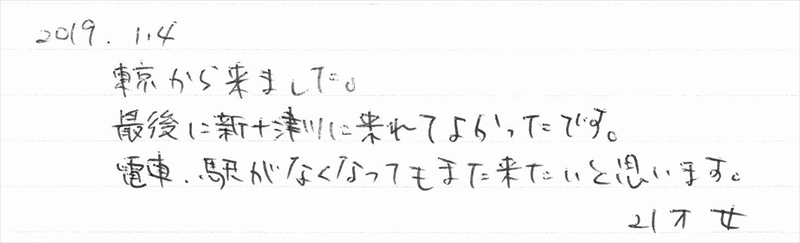 2019.1.4
東京から来ました。
最後に新十津川に来れてよかったです。
電車、駅がなくなってもまた来たいと思います。
21才 女